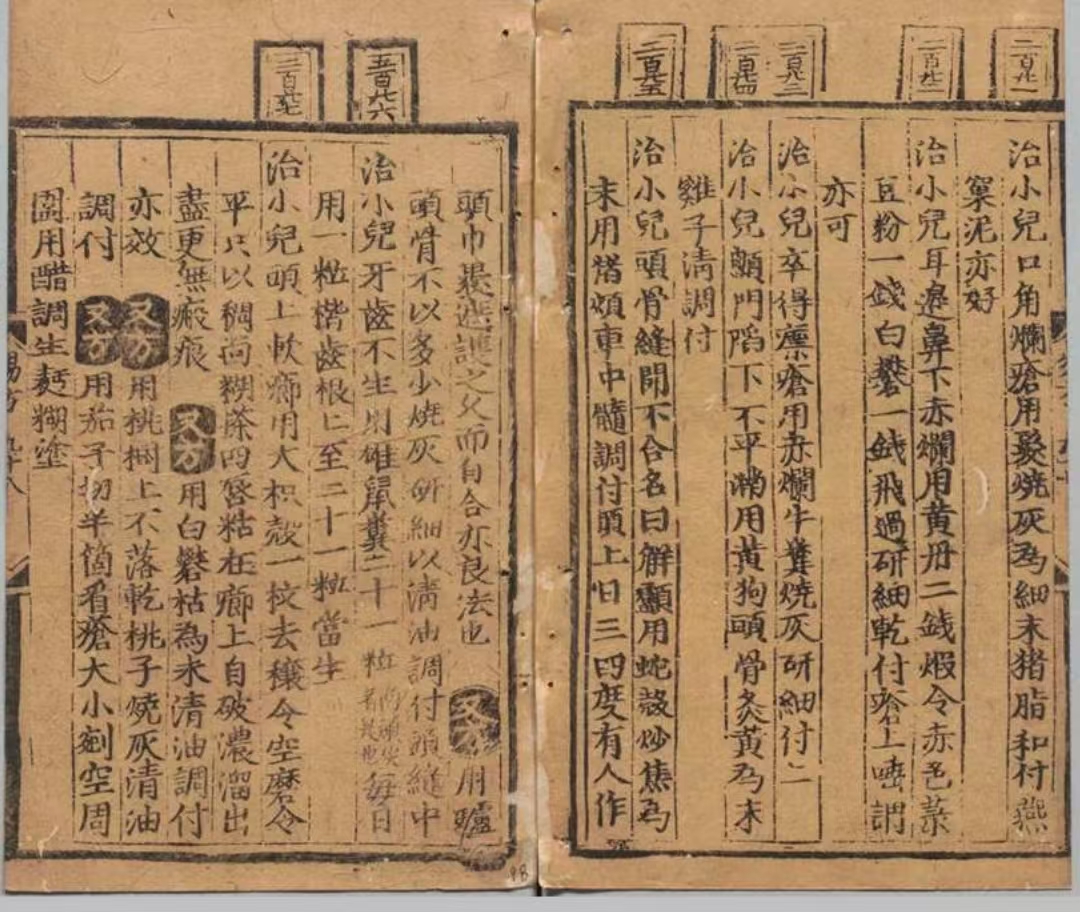 二百九十一
治小兒口角爛瘡用髮燒灰為細末猪脂和付燕
窠泥亦好
二百九十二
治小兒耳邊鼻下赤爛用黃丹二錢煆令赤色菉
豆粉一錢白礬一錢飛過研細乾付瘡上唾調
亦可
二百九十三
治小兒卒得瘭瘡用赤爛牛糞燒灰研細付之
二百九十四
治小兒顖門陷下不平滿用黃狗頭骨炙黃為末
雞子清調付
二百九十五
治小兒頭骨縫開不合名曰解顱用蛇殼炒焦為
末用猪頰車中髓調付頭上日三四度有人作
頭巾裹遮護之久而自合亦良法也 又方 用驢
頭骨不以多少燒灰研細以清油調付頭縫中
治小兒牙齒不生用雄鼠糞二十一粒兩頭尖者是也每日
用一粒楷齒根上至二十一粒當生
治小兒頭上軟癤用大枳殼一枚去穰令空磨令
平只以稠麪糊搽四唇粘在癤上自破濃溜出
盡更無瘢痕 又方 用白礬枯為末清油調付
亦效 又方 用桃樹上不落乾桃子燒灰清油
調付 又方 用茄子切半箇看瘡大小剜空周
圍用醋調生麪糊塗